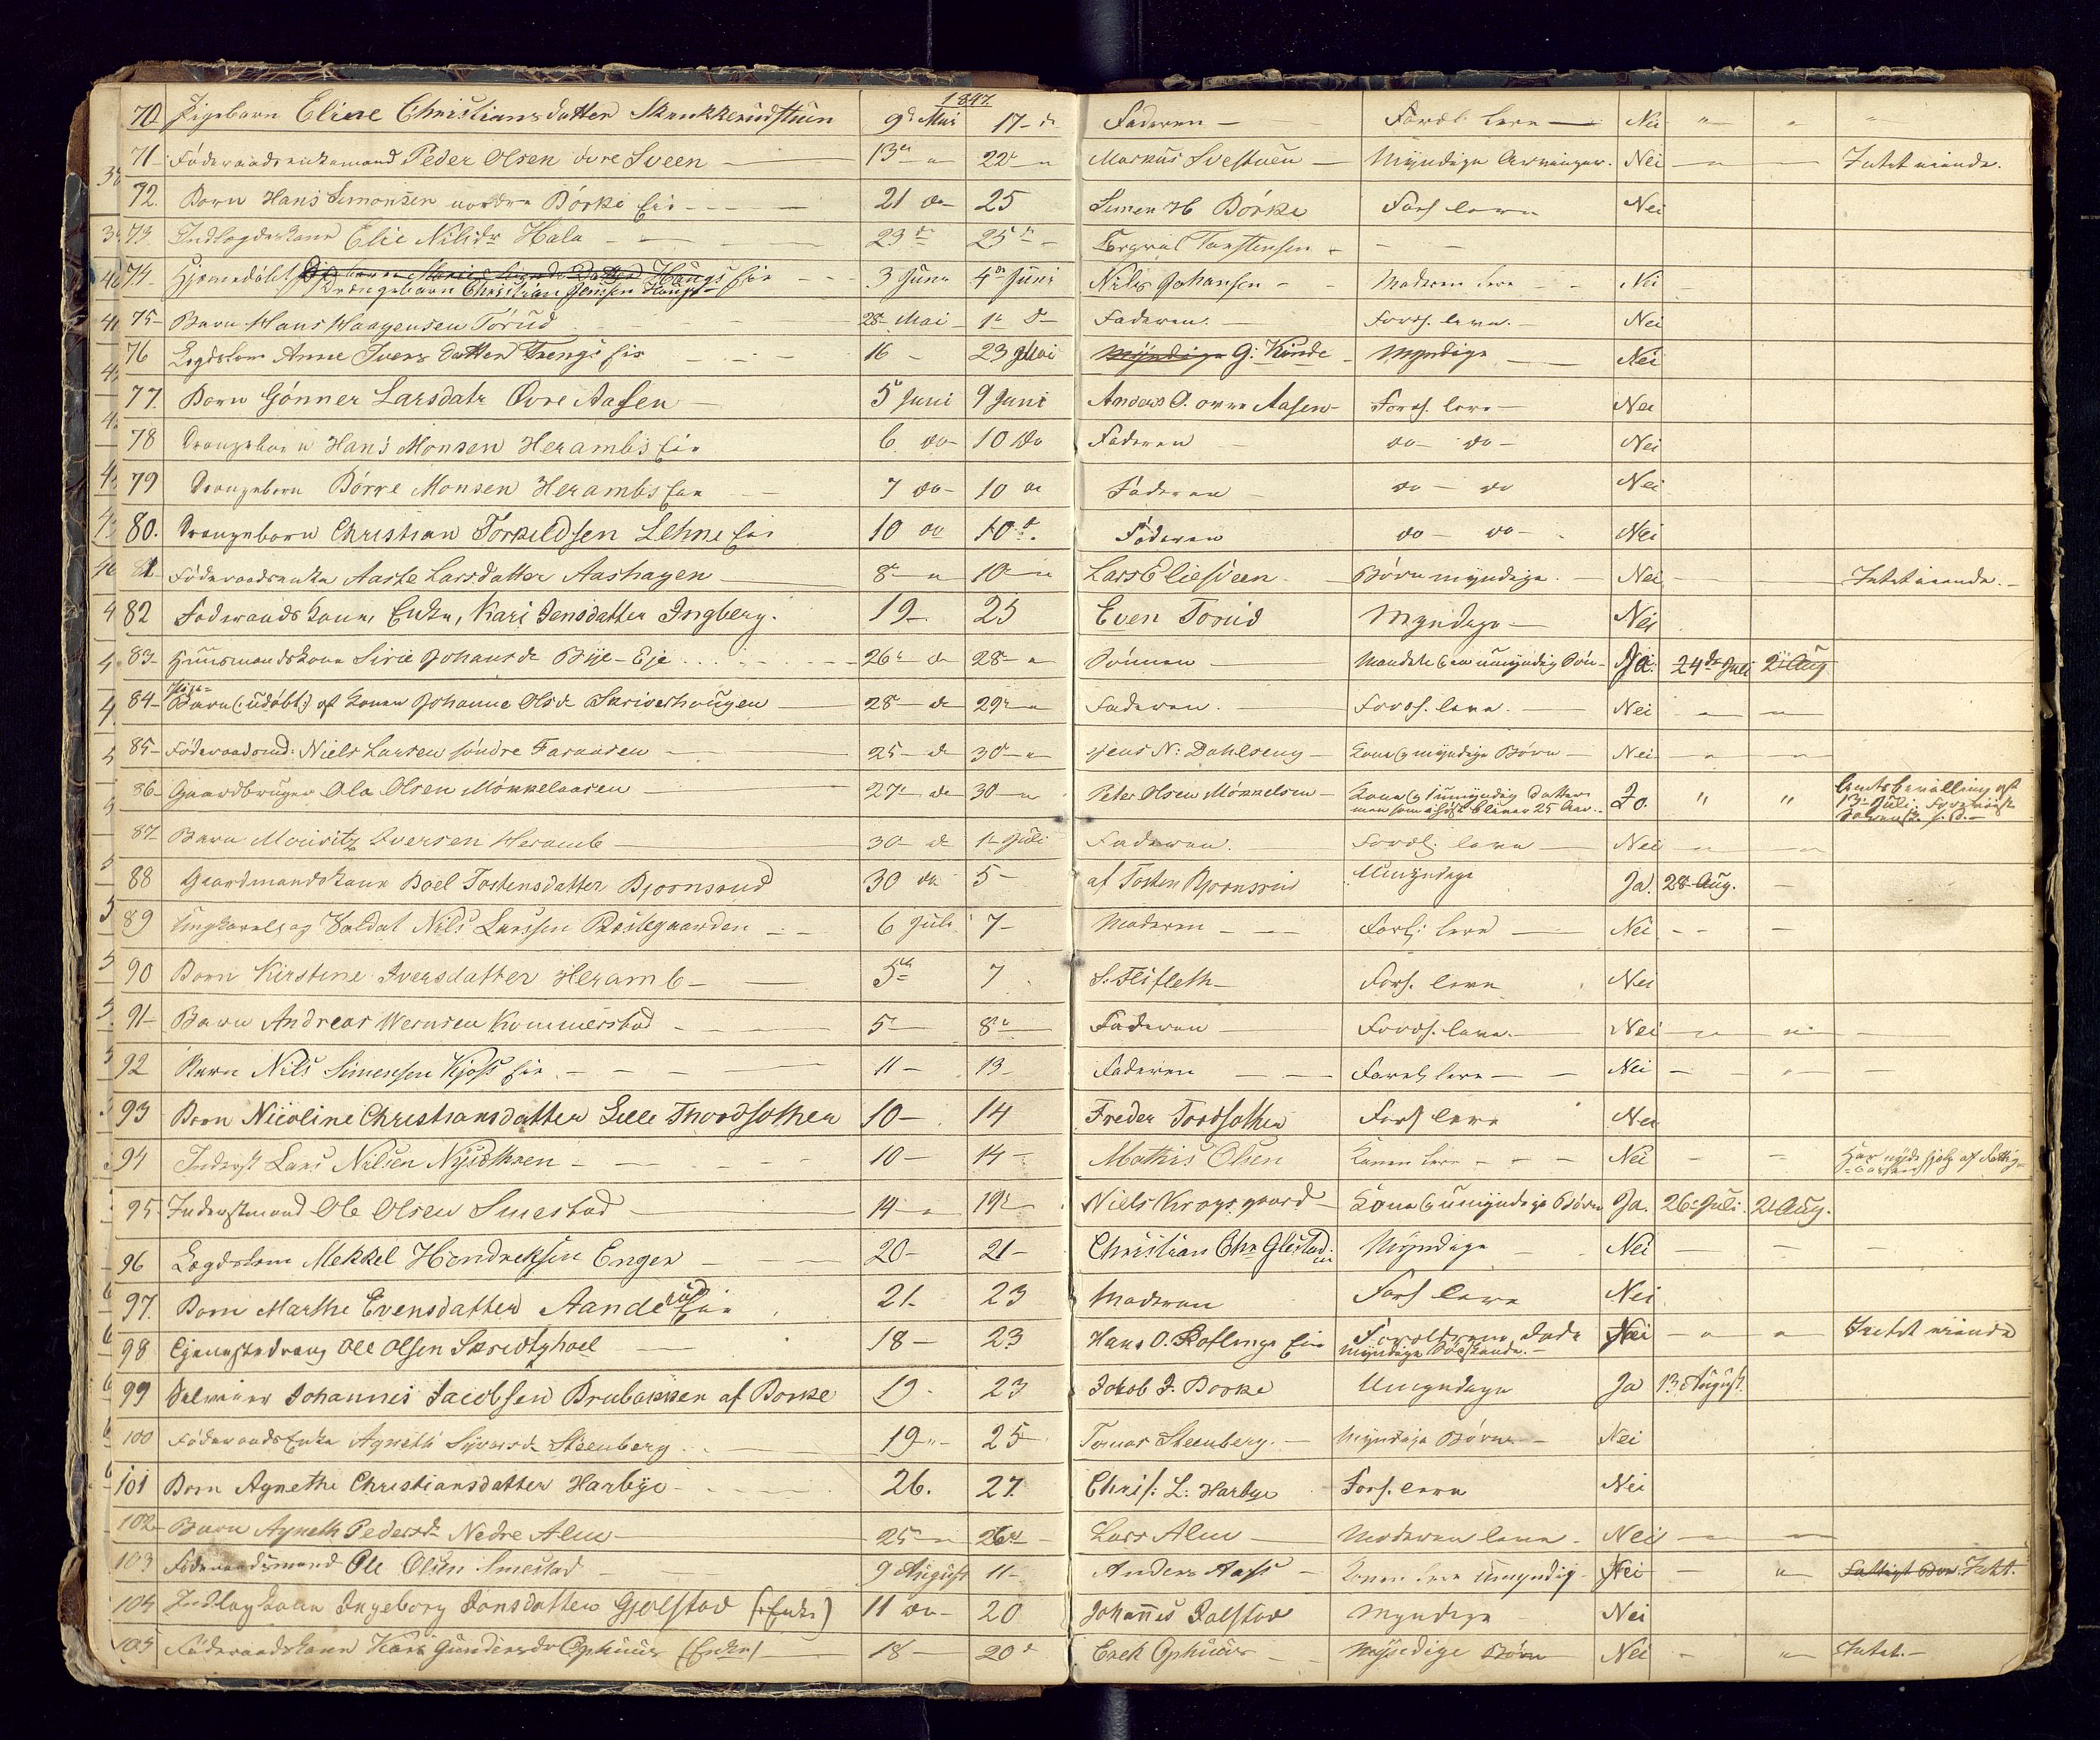 1847.
70 Pigebarn Eline Christiansdatter Skrukkerudstuen 9de Mai 17- d Faderen - Foræl: leve - Nei " " "
71- Föderaadsenkemand Peder Olsen övre Sveen - 13de 22de Markus Svestuen - Myndige Arvinger. Nei - - Intet eiende.
72. Barn Hans Simonsen nordre Börke Eie - 21 do 25 Simen H Börke Foræ. leve Nei
73 Indlagdskone Elie Nilsdr Hala - 23de 25de Torgvал Torstensen - - -
74. Hjemmedöbt Haugs Eie 3 Juni 4de Juni Nils Johansen - - Moderen leve - - Nei
Drengebarn Christian Jensen Haugs
75- Barn Hans Haagensen Törud 28- Mai 1ste d- Faderen. - Foræ. leve. - Nei
76 Lægdslem Anne Iversdatter Trengs Eie 16 - 23 Mai Myndige G: Kinde - Myndige - Nei
77. Barn Gönner Larsdatr Övre Aasen 5 Juni 9 Juni Anders O. övre Aasen - Foræ. leve - Nei
78 Drengebarn Hans Monsen Herambs Eie 6 do 10 do Faderen do - do - Nei
79 Drengebarn Börre Monsen Herambs Eie 7 do - 10 do Faderen do - do Nei
80. Drengebarn Christian Torkildsen Lehne Eie 10 do 10de. Faderen do - do - Nei
81. Föderaadsenke Aaste Larsdatter Aashagen - 8de 10de Lars Eliesveen - Börn myndige. - Nei - - Intet eiende. -
82 Foderaadskone, Enke, Kari Jensdatter Ingberg. 19- 25 Even Torud Myndige - Nei
83- Huusmandskone Sirie Johansdr Bye-Eje 26de d 28de Sönnen - Manden og en umyndig Sön - Ja. 24de Juli 21 Aug
84- Pige-Barn (: udöbt:) af Konen Johanne Olsdr Skriverhaugen - 28de d 29de Faderen. - Foræ. leve. - Nei - -
85- Föderaadsmd: Niels Larsen söndre Faraasen 25- d 30de Jens N: Dahlseng - Kone og myndige Börn - Nei - -
86- Gaardbruger Ola Olsen Mönkelaasen - 27de d 30- Peter Olsen Mönkelsen - Kone og 1 umyndig Datter Jo. " " Amtsbevilling af
men som i Höst bliver 25 Aar. - 13de Juli
87- Barn Mouritz Iversen Heramb - 30- d 1ste Juli Faderen. Foræl: leve - Nei - -
88 Gaardmandskone Boel Tostensdatter Bjornsrud 30 do 5 - af Tosten Bjornsrud Umyndige Ja. 28 Aug. -
89 Ungkarl og Soldat Nils Larssen Röstegaarden - - 6 Juli 7- Moderen - - - Foræl: leve - Nei - - -
90 Barn Kirstine Iversdatter Heramb - - 5te 7 S: Flifleth - Foræ. leve Nei
91- Barn Andreas Wernsen Kommerstad - 5de 8de Faderen - Foræ. leve. - Nei - -
92 Barn Nils Simensen Kjoss Eie - - - 11 - 13- Faderen - - Foræl: leve - - Nei - - -
93 Barn Nicoline Christiansdatter Lille Thordsothen 10- 14 Freder Tordsothen Foræ leve Nei
94 Inderst Lars Nilsen Nysæthren - - 10- 14- Mathis Olsen Konen leve - - - Nei - - Har nydt Hjelp af Fattig-
Cassen
95- Inderstmand Ole Olsen Smestad - 14- 19de Niels Kragsgaard - Kone og umyndige Börn Ja. 26de Juli. 21 Aug.
96 Lægdslem Mekkel Hendreksen Enger - - - 20- 21- Christian Chr Glestad - Myndige - Nei - - -
97. Barn Marthe Evensdatter Aanderud Eie 21- 23 Moderen Foræ leve Nei
98 Tjenestedreng Ole Olsen Skredtyhoel - 18- 23 Hans O. Roflengs Eie Foreldrene Døde Nei - - - Intet eiende
myndige Söskende. -
99 Johannes Jacobsen Brubakken af Borke 19- 23 Jokob J. Borke Umyndige Ja 13 August.
100 FöderaadsEnke Agnethe Syversdr Steenberg - 19- 25- Tomas Steenberg. - Myndige Börn - Nei
101 Barn Agnethe Christiansdatter Harbye - - - - 26. 27. Chris: L: Harbye Foræ. leve Nei
102- Barn Agneth Pedersdr Nedre Alm - 25- 26de - Lars Alm - Moderen leve - Nei - -
103 Föderaadsmand Ole Olsen Smestad - 9 August 11- Anders Aass - Konen leve umyndig - Nei - - Intet.
104 Indlagskone Ingeborg Jonsdatter Gjolstad (: Enke) 11 do - 20 Johannes Jolstad Myndige Nei
105 Föderaadskone Kari Gundersdr Ophuus (Enke) - 18- 20de Erek Ophuus - - Myndige Börn Nei - - Intet. -